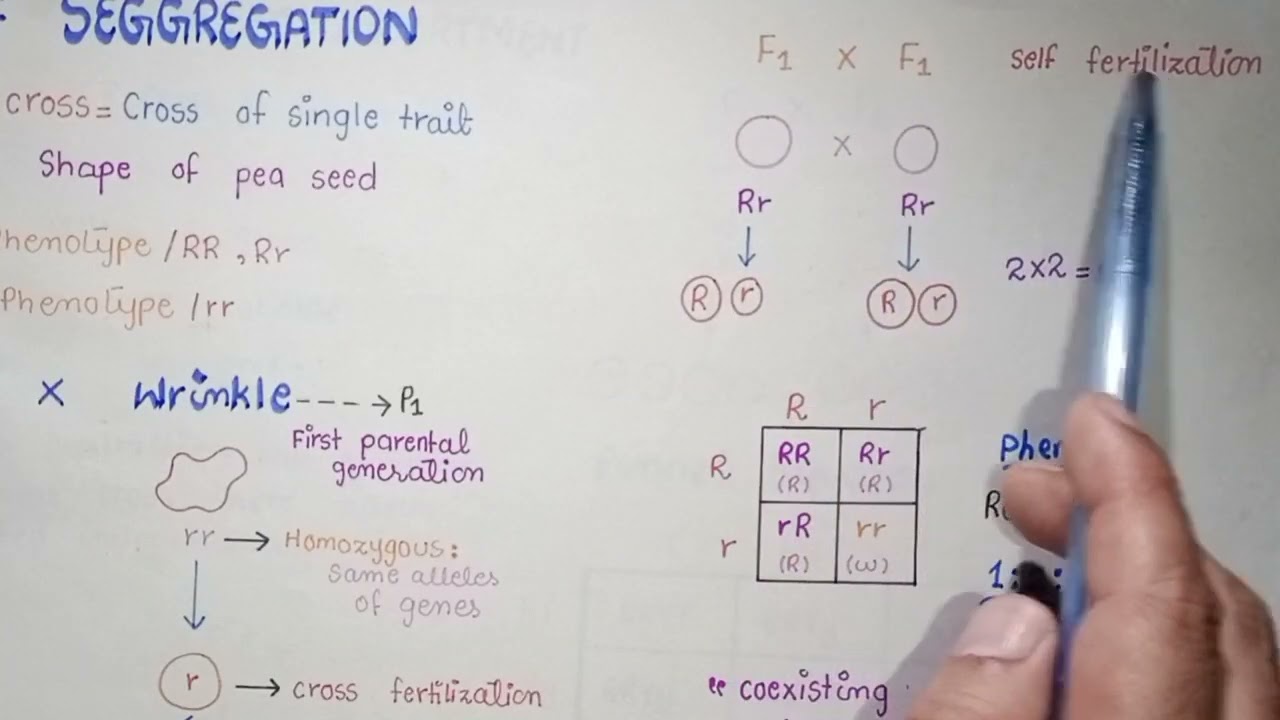 SEGGREGATION
cross = Cross of single trait
Shape of pea seed
Phenotype / RR , Rr
Phenotype / rr
X Wrinkle ----> P1
First parental
generation
rr → Homozygous:
Same alleles
of genes
r → cross fertilization
F1 x F1 self fertilization
x
Rr Rr
R r R r
2x2 =
R r
R RR Rr
(R) (R)
r rR rr
(R) (w)
Phen
1:
"coexisting